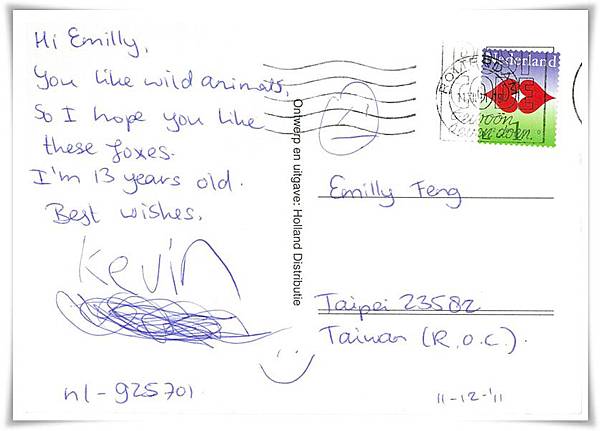 Hi Emilly,
You like wild animals,
So I hope you like
these foxes.
I'm 13 years old.
Best wishes,
Kevin
nl-925701
Ontwerp en uitgave: Holland Distributie
Nederland
ROTTERDAM
gewoon
doen
Emilly Feng
Taipei 23582
Taiwan (R.O.C.).
11-12-'11